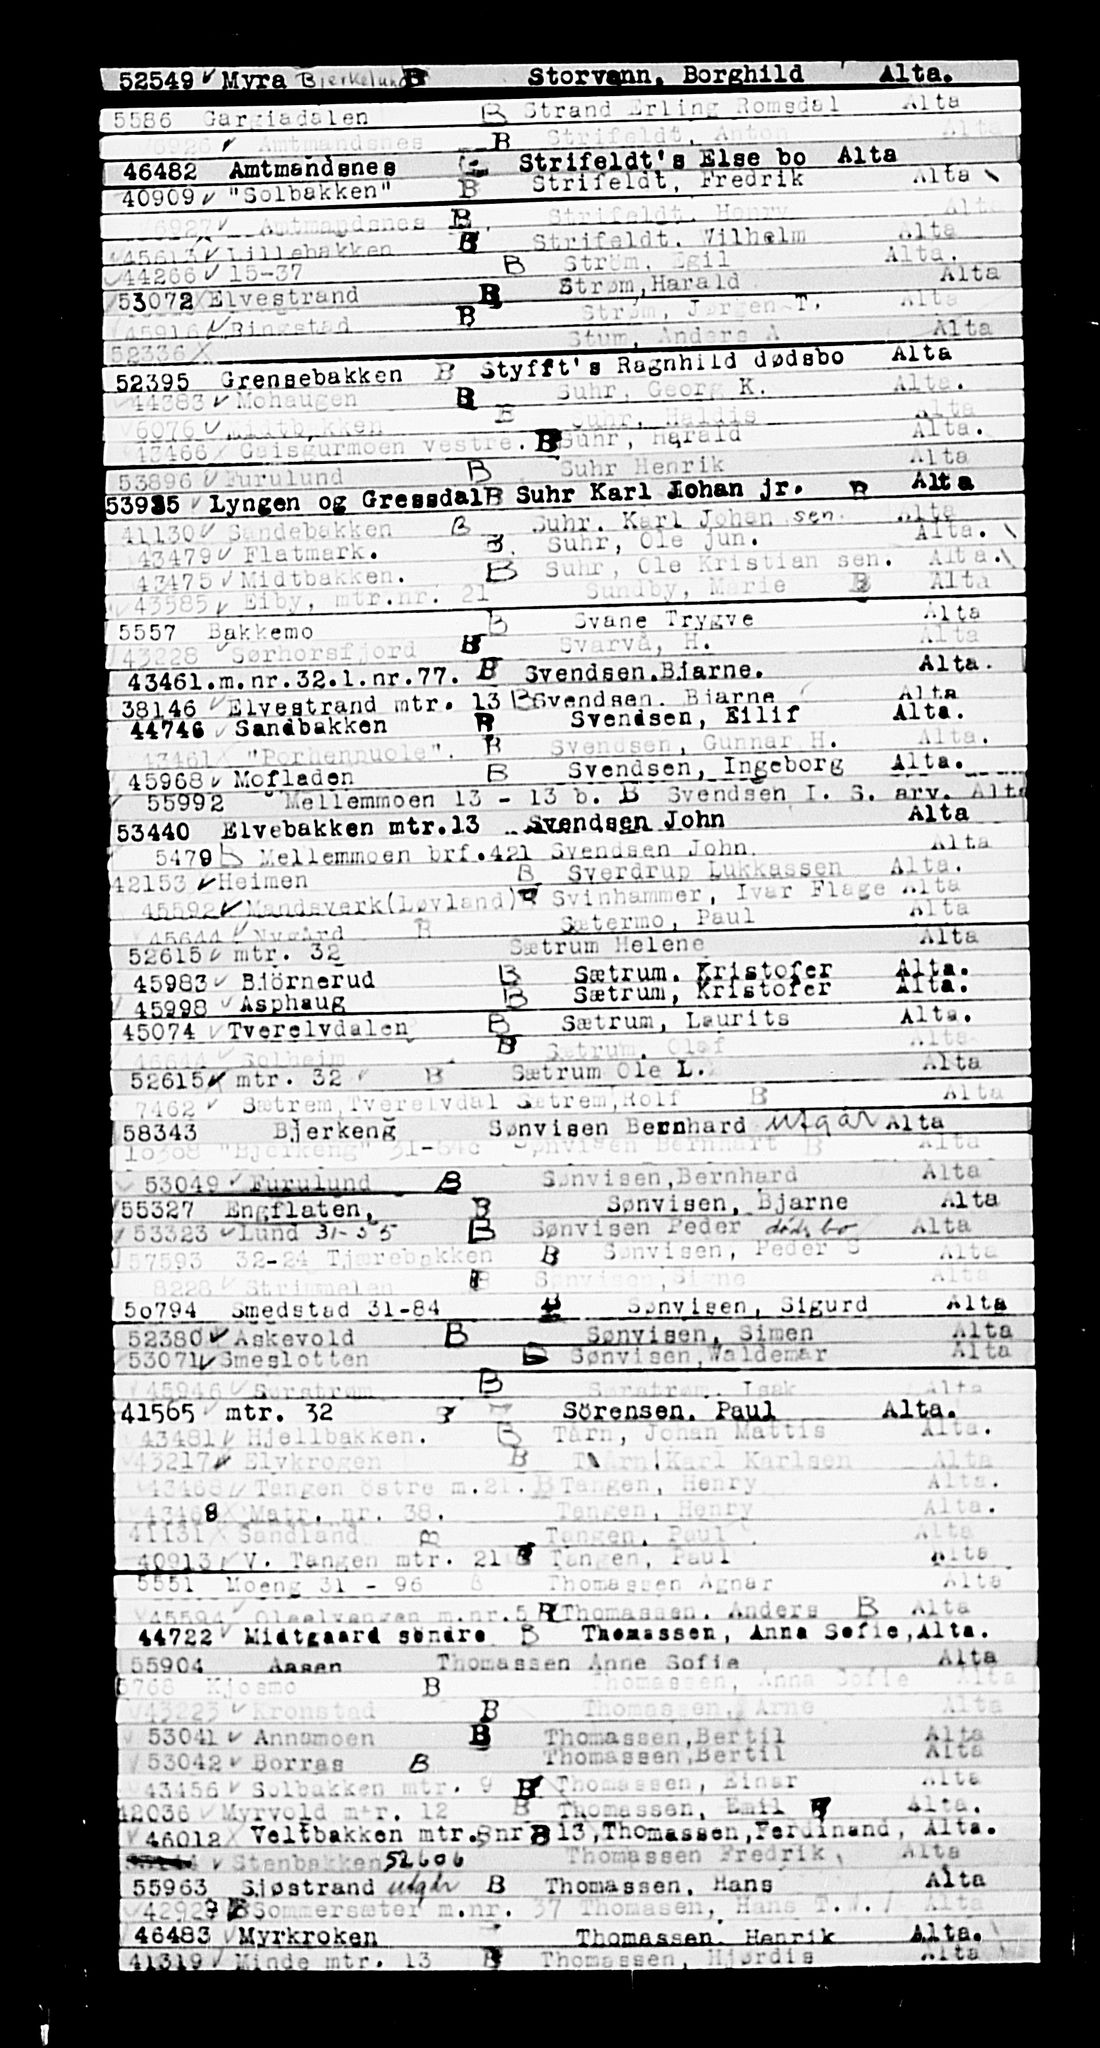 52549 ✓ Myra Bjerkelund B Storvann, Borghild Alta.
5586 Gargiadalen B Strand Erling Romsdal Alta
6926 ✓ Amtmandsnes B Strifeldt, Anton Alta
46482 Amtmandsnes Strifeldt's Else bo Alta
40909 ✓ "Solbakken" B Strifeldt, Fredrik Alta
6927 ✓ Amtmandsnes B Strifeldt, Henry Alta
45613 ✓ Lillebakken B Strifeldt, Wilhelm Alta
44266 ✓ 15-37 B Ström, Egil Alta.
53072 X Elvestrand B Strøm, Harald Alta
45916 ✓ Ringstad B Strøm, Jørgen T. Alta
52336 X Stum, Anders A Alta
52395 Grensebakken B Styfft's Ragnhild dødsbo Alta
44383 ✓ Mohaugen B Suhr, Georg K. Alta.
6076 ✓ Midtbakken B Suhr, Haldis Alta
43466 X Gaisgurmoen vestre. B Suhr, Harald Alta.
53896 ✓ Furulund B Suhr Henrik Alta
53985 ✓ Lyngen og Gressdal B Suhr Karl Johan jr. B Alta
41130 ✓ Sandebakken B Suhr, Karl Johan sen. Alta
43479 ✓ Flatmark. B. Suhr, Ole jun. Alta.
43475 ✓ Midtbakken. B Suhr, Ole Kristian sen. Alta.
43585 ✓ Eiby, mtr.nr. 21 Sundby, Marie B Alta
5557 Bakkemo B Svane Trygve Alta
43228 ✓ Sørhorsfjord B Svarva, H. Alta
43461.m.nr.32.l.nr.77. B Svendsen.Bjarne. Alta.
38146 ✓ Elvestrand mtr. 13 B Svendsen, Bjarne Alta
44746 ✓ Sandbakken B Svendsen, Eilif Alta.
43461 X "Porhenpuole". B Svendsen, Gunnar H. Alta.
45968 ✓ Mofladen B Svendsen, Ingeborg Alta.
55992 Mellemmoen 13 - 13 b. B Svendsen I. S. arv. Alta
53440 Elvebakken mtr.13 Svendsen John Alta
5479 B Mellemmoen brf.421 Svendsen John Alta
42153 ✓ Heimen B Sverdrup Lukkassen Alta.
45592 ✓ Mandsverk(Løvland) B Svinhammer, Ivar Flage Alta
45644 ✓ Nygård B Sætermo, Paul Alta
52615 ✓ mtr. 32 Sætrum Helene Alta
45983 ✓ Björnerud B Sætrum, Kristofer Alta.
45998 ✓ Asphaug B Sætrum, Kristofer Alta.
45074 ✓ Tverelvdalen B Sætrum, Laurits Alta.
46644 ✓ Solheim B Sætrum, Olaf Alta.
52615 ✓ mtr. 32 B Sætrum Ole L. Alta
7462 ✓ Sætrem, Tverelvdal Sætrem, Rolf B Alta
58343 Bjerkeng Sønvisen Bernhard utgår Alta
"Bjerkeng" Sønvisen Bernhart B Alta
53049 ✓ Furulund B Sønvisen, Bernhard Alta
55327 Engflaten, B Sønvisen, Bjarne Alta
53323 ✓ Lund 31-55 B Sønvisen Peder dødsbo Alta
57593 32-24 Tjærebakken B Sønvisen, Peder S Alta
8228 ✓ Strimmelen B Sønvisen, Signe Alta
50794 Smedstad 31-84 B Sønvisen, Sigurd Alta
52380 ✓ Askevold B Sønvisen, Simen Alta
53071 ✓ Smeslotten B Sønvisen, Waldemar Alta
45946 ✓ Sørstrøm B Sørstrøm, Isak Alta
41565 mtr. 32 Sörensen, Paul Alta.
43481 ✓ Hjellbakken. B Tårn, Johan Mattis Alta.
43217 ✓ Elvkrogen B Tårn, Karl Karlsen Alta
43468 ✓ Tangen östre m.21. B Tangen, Henry Alta.
43468 Matr. nr. 38. Tangen, Henry Alta.
41131 X Sandland B Tangen, Paul Alta
40913 ✓ V. Tangen mtr. 21 B Tangen, Paul Alta
5551 Moeng 31 - 96 B Thomassen Agnar Alta
45594 ✓ Olaelvangen m.nr.5 B Thomassen, Anders B Alta
44722 ✓ Midtgaard söndre B Thomassen, Anna Sofie, Alta.
55904 Aasen Thomassen Anne Sofie Alta
5768 Kjosmo B Thomassen, Anna Sofie Alta
43223 ✓ Kronstad B Thomassen, Arne Alta
53041 ✓ Annamoen B Thomassen, Bertil Alta
53042 ✓ Borras B Thomassen, Bertil Alta
43456 ✓ Solbakken mtr. 9 B Thomassen, Einar Alta
42036 ✓ Myrvold mtr. 12 B Thomassen, Emil B Alta.
46012 X Veltbakken mtr.8nr B 13, Thomassen, Ferdinand, Alta.
✓ Stenbakken 52606 Thomassen Fredrik Alta
55963 Sjøstrand utgår B Thomassen, Hans Alta
42929 B Sommersæter m.nr. 37 Thomasen, Hans T. Alta
46483 ✓ Myrkroken Thomassen, Henrik Alta.
41319 ✓ Minde mtr. 13 B Thomassen, Hjørdis Alta